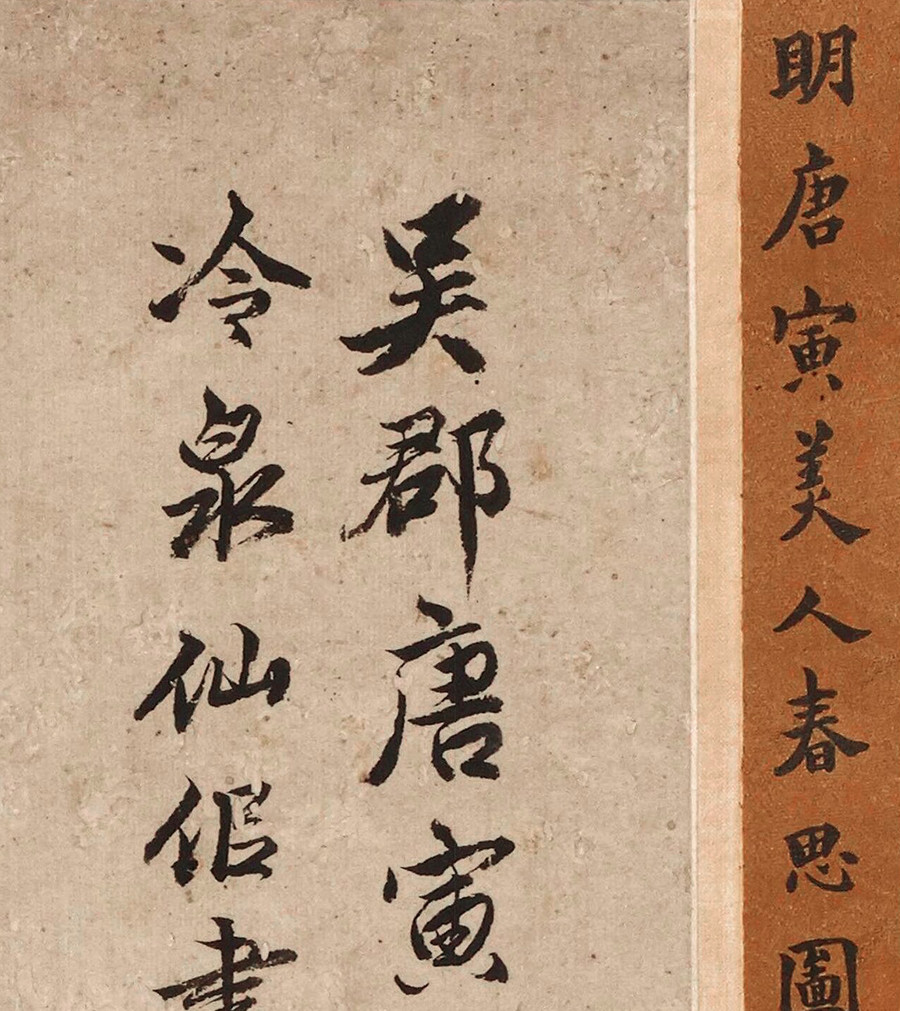 明唐寅美人春思圖
吳郡唐寅
冷泉仙侶